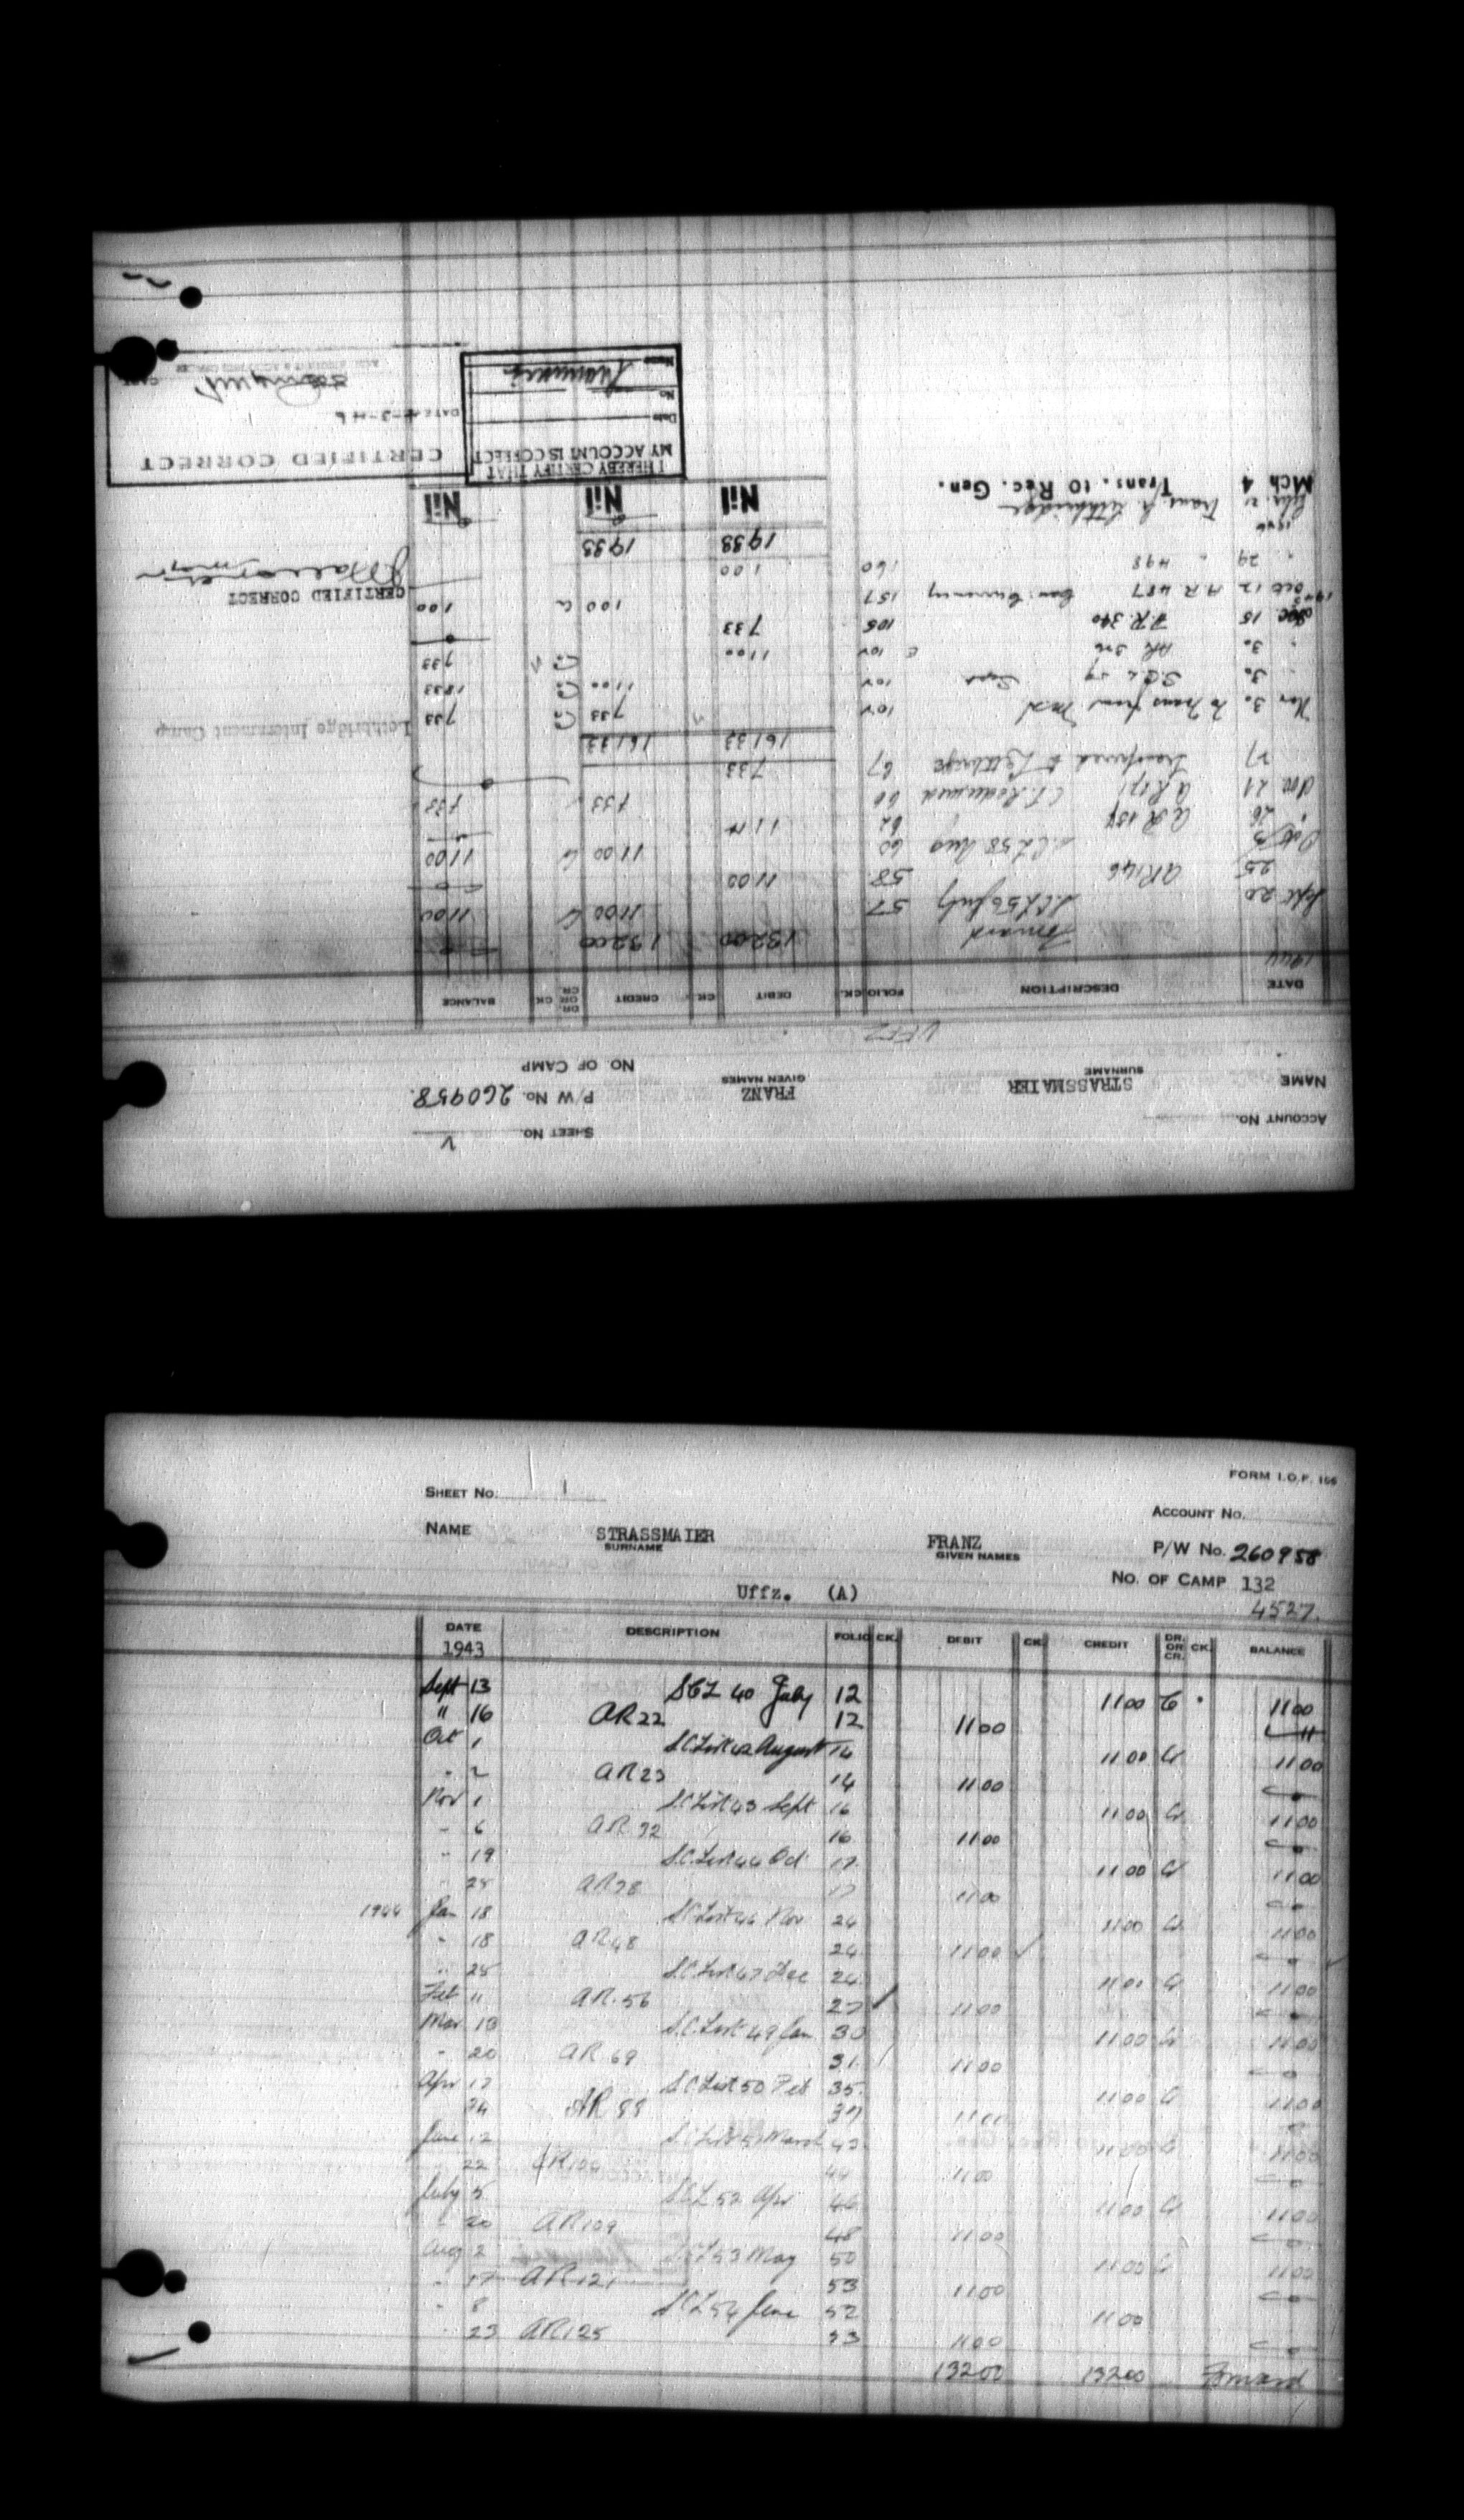 ACCOUNT No.
SHEET No. V
NAME STRASSMAIER FRANZ P/W No. 260958.
SURNAME GIVEN NAMES
NO. OF CAMP
UFFZ
DATE DESCRIPTION FOLIO CK. DEBIT CK. CREDIT DR. OR CR. CK. BALANCE
1944
Forward 13200 13200
Sept 20 S.C.L 56 July 57 1100 Cr 1100
25 AR146 58 1100
Oct S.C.L 58 Aug 60 1100 Cr 1100
26 AR 62
Nov 21 66 733 733
27 Transferred to Lethbridge 67 733
16133 16133
Nov 3. To Trans from 102 733 Cr 733 Lethbridge Internment Camp
3. S.C.L Sept 102 1100 Cr 1833
3. AR 102 1100 Cr 733
15 340 105 733
Oct 12 A.R 487 157 100 Cr 100 CERTIFIED CORRECT
29 498 160 100
1938 1933
1946
Trans. to Lethbridge
Mch 4 Trans. to Rec. Gen. Nil Nil Nil
I HEREBY CERTIFY THAT
MY ACCOUNT IS CORRECT
Date
No.
Name
CERTIFIED CORRECT
DATE 4-3-46
FORM I.O.F. 166
SHEET No. 1
ACCOUNT No.
NAME STRASSMAIER FRANZ P/W No. 260958
SURNAME GIVEN NAMES
No. OF CAMP 132
Uffz. (A)
4527.
DATE DESCRIPTION FOLIO CK. DEBIT CK. CREDIT DR. OR CR. CK. BALANCE
1943
Sept 13 SCL 40 July 12 1100 Cr 1100
" 16 AR22 12 1100
Oct 1 S.C List 42 August 14 1100 Cr 1100
" 2 AR23 14 1100
Nov 1 S.C List 43 Sept 16 1100 Cr 1100
" 6 AR 32 16 1100
" 19 S.C. List 44 Oct 17 1100 Cr 1100
" 25 AR38 17 1100
1944 Jan 18 S.C List 46 Nov 24 1100 Cr 1100
" 18 AR48 24 1100
" 25 S.C. List 47 Dec 24 1100 Cr 1100
Feb 11 AR.56 27 1100
Mar 13 S.C. List 49 Jan 30 1100 Cr 1100
" 20 AR 69 31. 1100
Apr 17 S.C List 50 Feb 35. 1100 Cr 1100
24 AR 88 37 1100
June 12 S.C List 51 March 43 1100 Cr 1100
22 44 1100
July 5 SCL 52 Apr 46 1100 Cr 1100
" 20 AR109 48 1100
Aug 2 SCL 53 May 50 1100 Cr 1100
" 17 AR121 53 1100
" 8 SCL 54 June 52 1100
23 AR125 53 1100
13200 13200 Forward